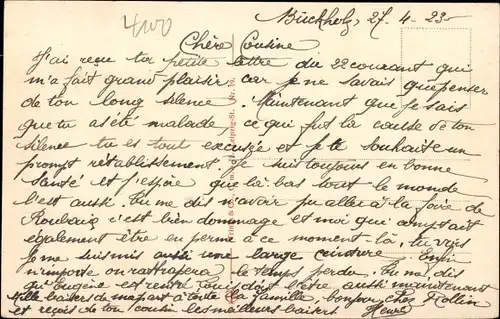 400
Buckholz, 27-4-23
Chère Cousine
J'ai reçu ta petite lettre du 22 courant qui
m'a fait grand plaisir car je ne savais que penser
de ton long silence. Maintenant que je sais
que tu as été malade, ce qui fut la cause de ton
silence tu es tout excusée et je te souhaite un
prompt rétablissement. Je suis toujours en bonne
santé et j'espère que là-bas tout le monde
l'est aussi. Tu me dis n'avoir pu aller à la foire de
Roubaix c'est bien dommage et moi qui comptait
également être en perme à ce moment là, tu vois
je me suis mis aussi une large ceinture. Enfin
n'importe on rattrapera le temps perdu. Tu me dis
qu'Eugène est rentré aussi maintenant
Mille baisers de ma part à toute la famille, bonjour chez Rollin
et reçois de ton cousin les meilleurs baisers Henri